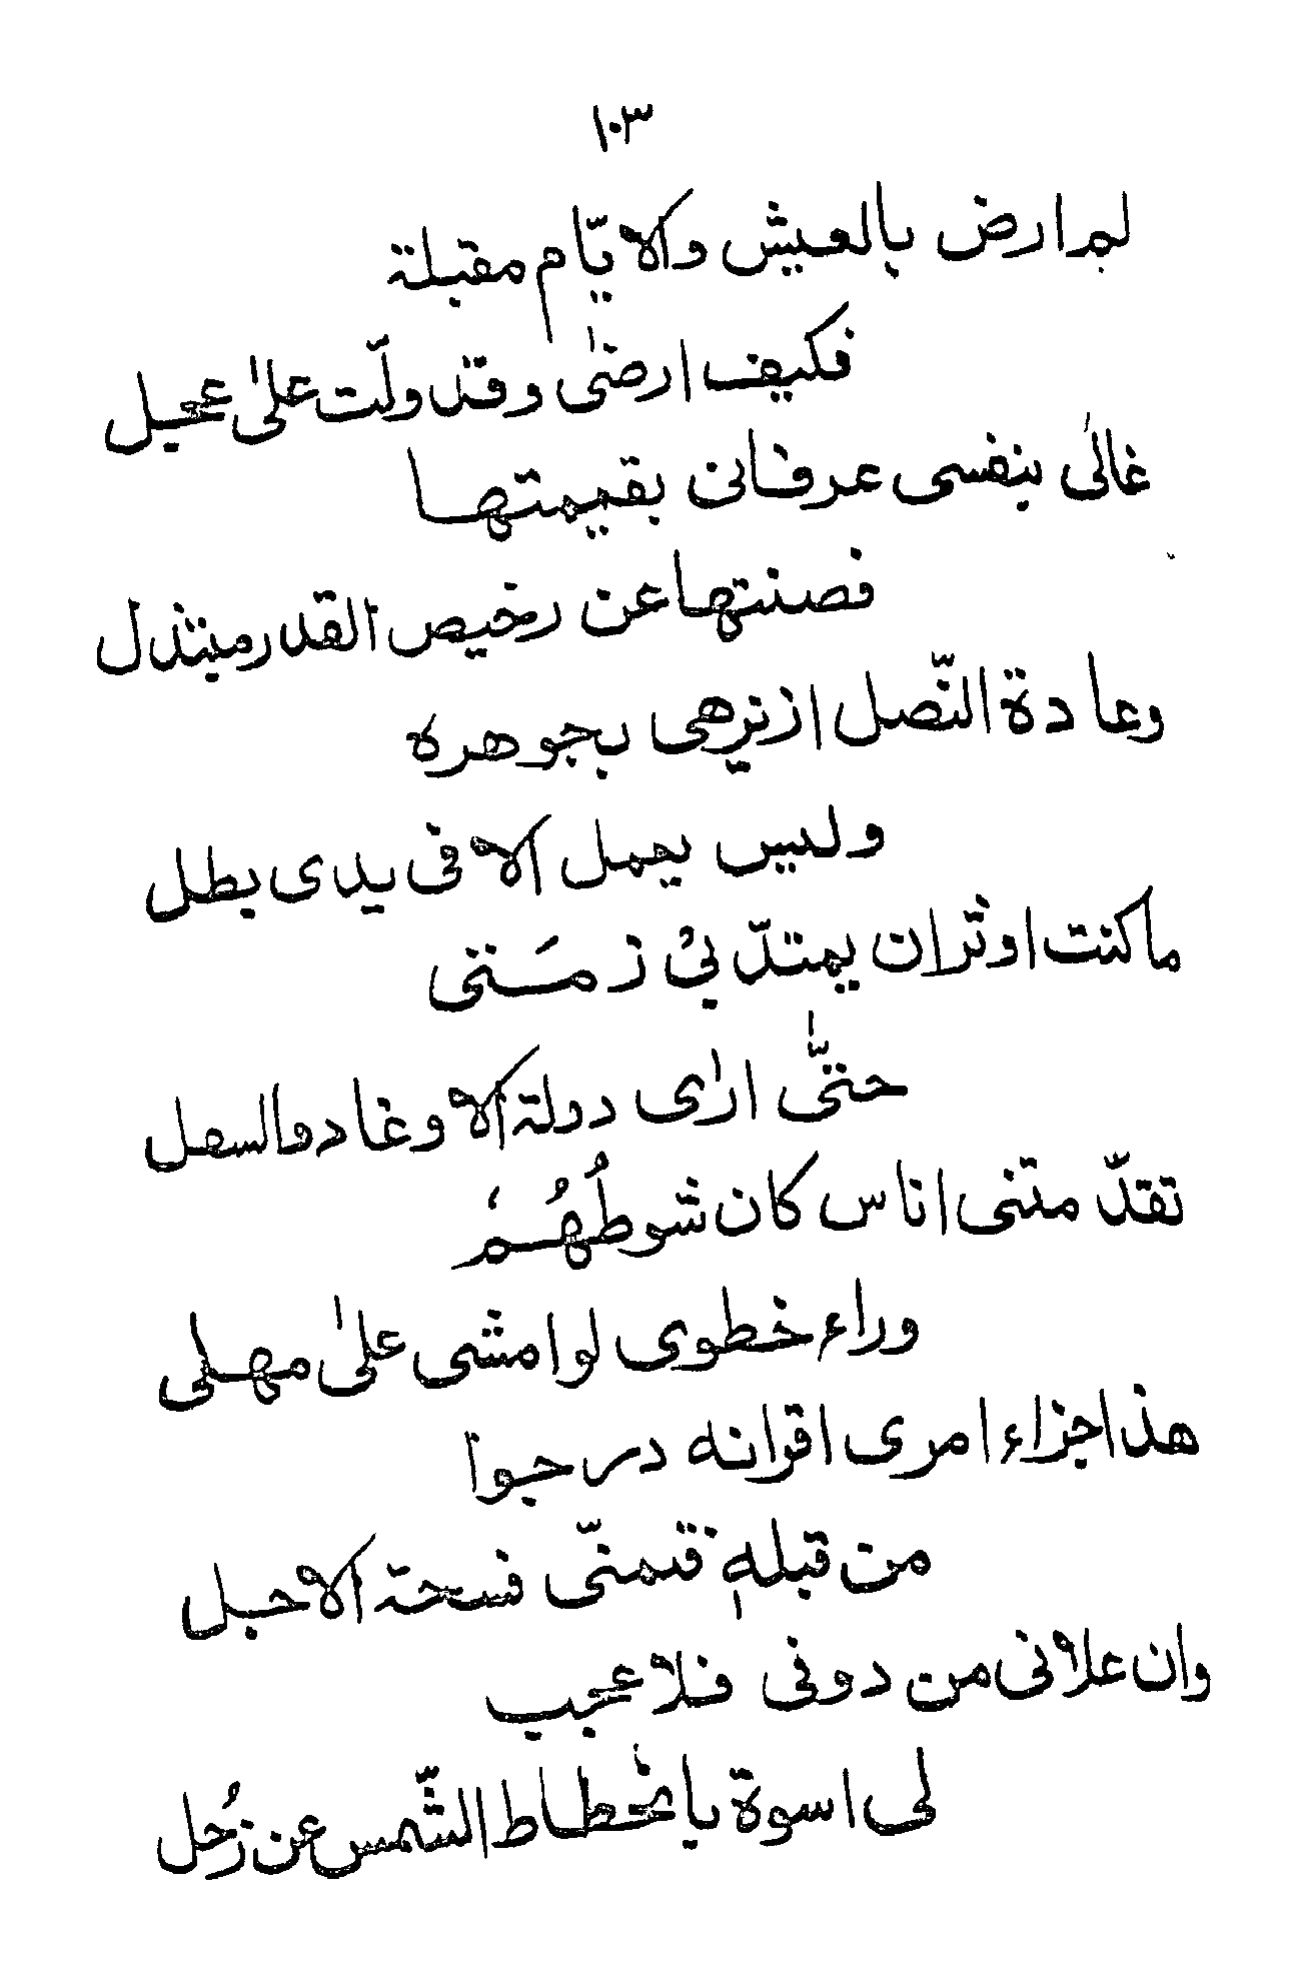 ١٠٣
لم ارض بالعيش والايّام مقبلة
فكيف ارضىٰ وقد ولّت علىٰ عجيل
غالىٰ بنفسى عرفانى بقيمتها
فصنتها عن رخيص القدر مبتذل
وعادة النّصل ان يزهى بجوهره
وليس يعمل الا فى يدى بطل
ما كنت اوثر ان يمتدّ بى زمنى
حتىّٰ ارٰى دولة الاوغاد والسفل
تقدّ متنى اناس كان شوطُهُم
وراء خطوى لوامشى علىٰ مهلى
هذا جزاء امرى اقرانه درجوا
من قبلهٖ فتمنّى فسحة الاجل
وان علانى من دونى فلا عجب
لى اسوة بانحطاط الشّمس عن زُحل